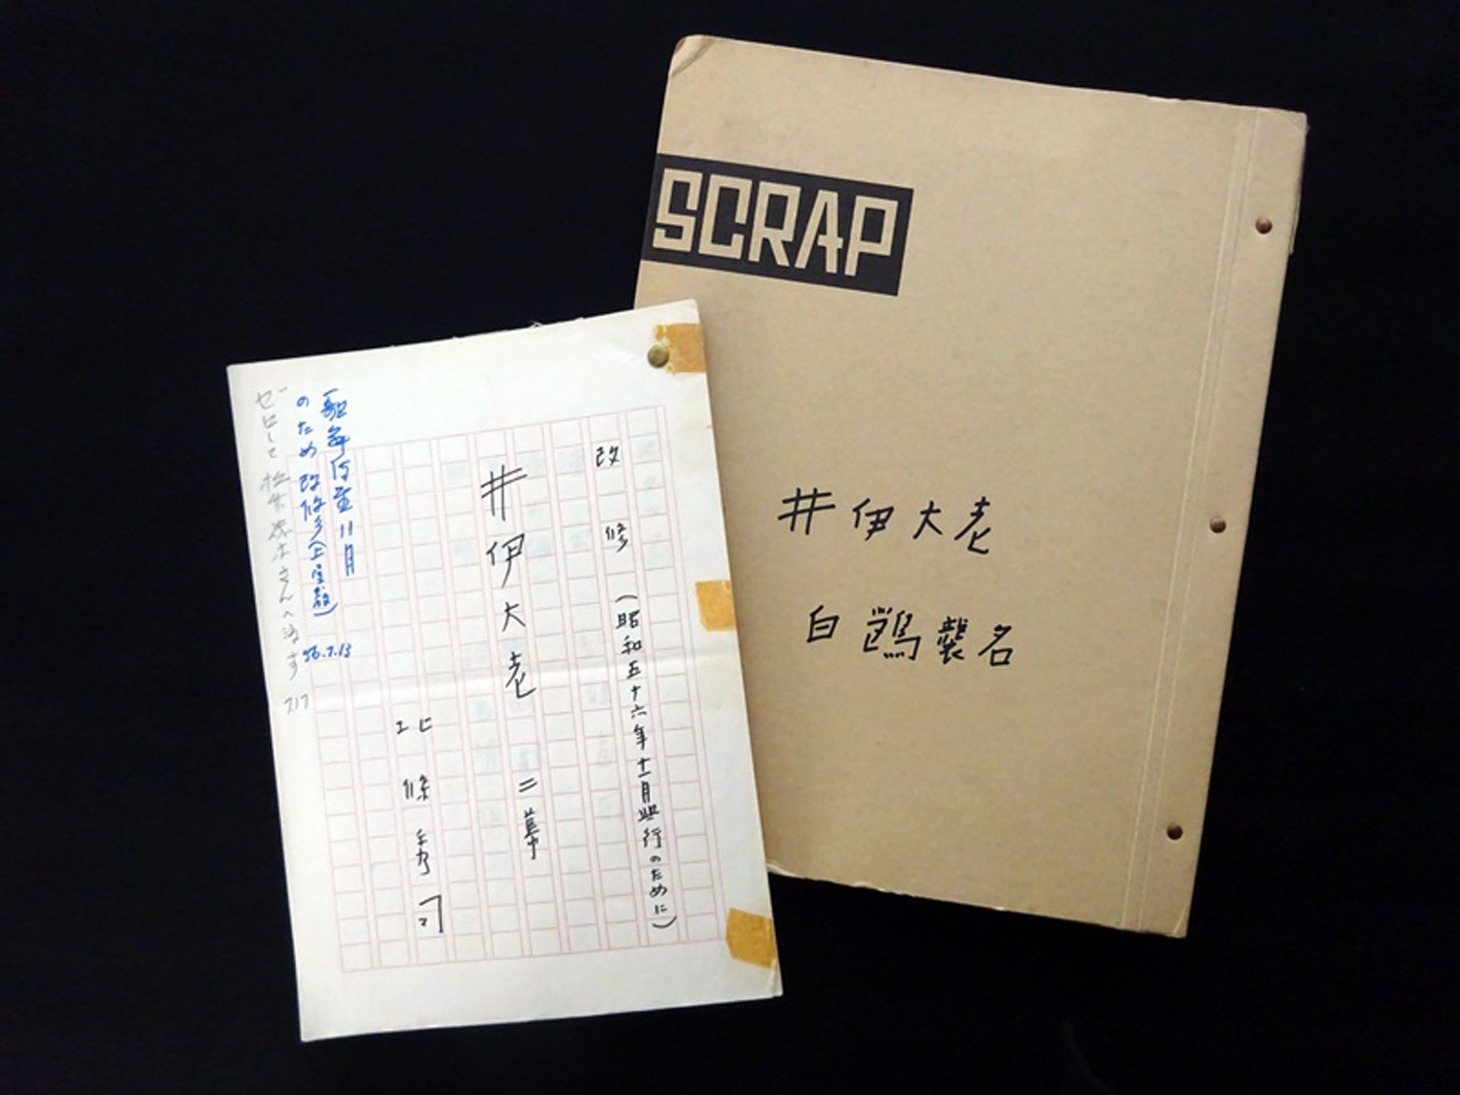 SCRAP
井伊大老
白鸚襲名
改修(昭和五十六年十一月興行のために)
井伊大老 二幕
北條秀司
歌舞伎座11月
のため改修多(上宣載)
56.7.13
ゼロして さんへ渡す
7.17